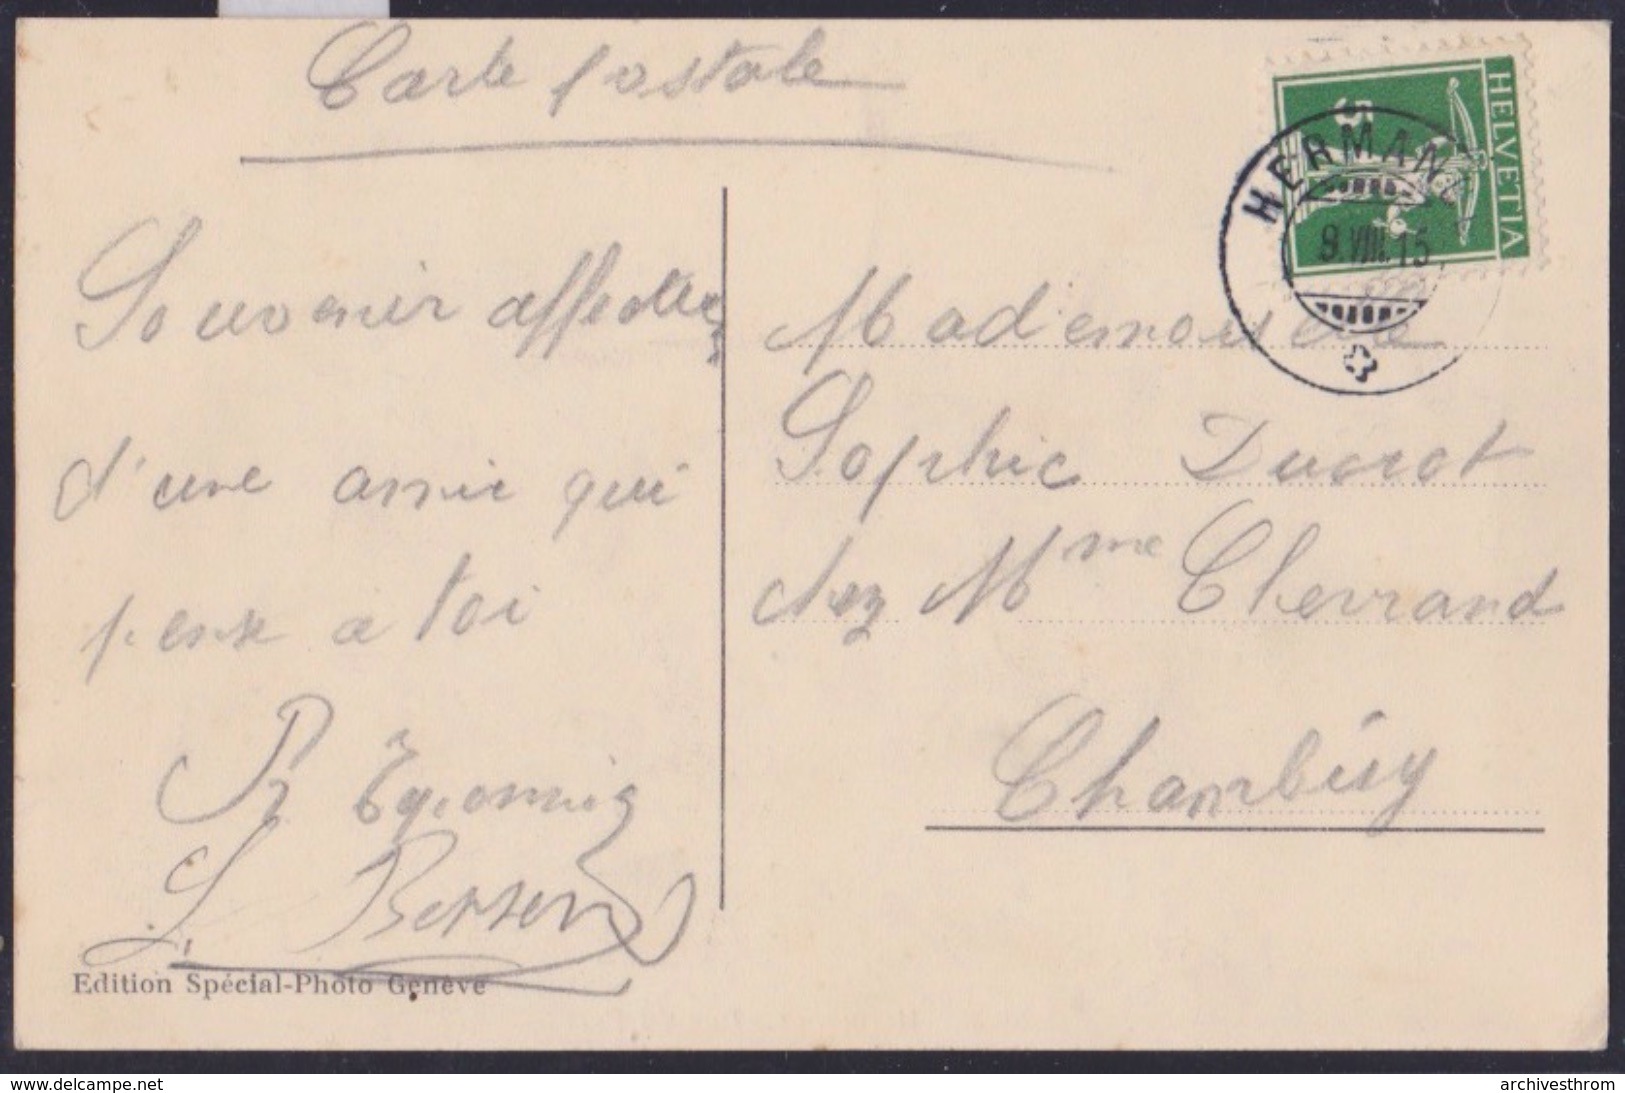 Carte postale
HELVETIA
5
HERMANCE
9.VIII.15
Souvenir affectueux
d'une amie qui
pense a toi
L. Berson
Mademoiselle
Sophie Ducrot
chez Mme Chevrand
Chambésy
Edition Spécial-Photo Genève
www.delcampe.net
archivesthrom